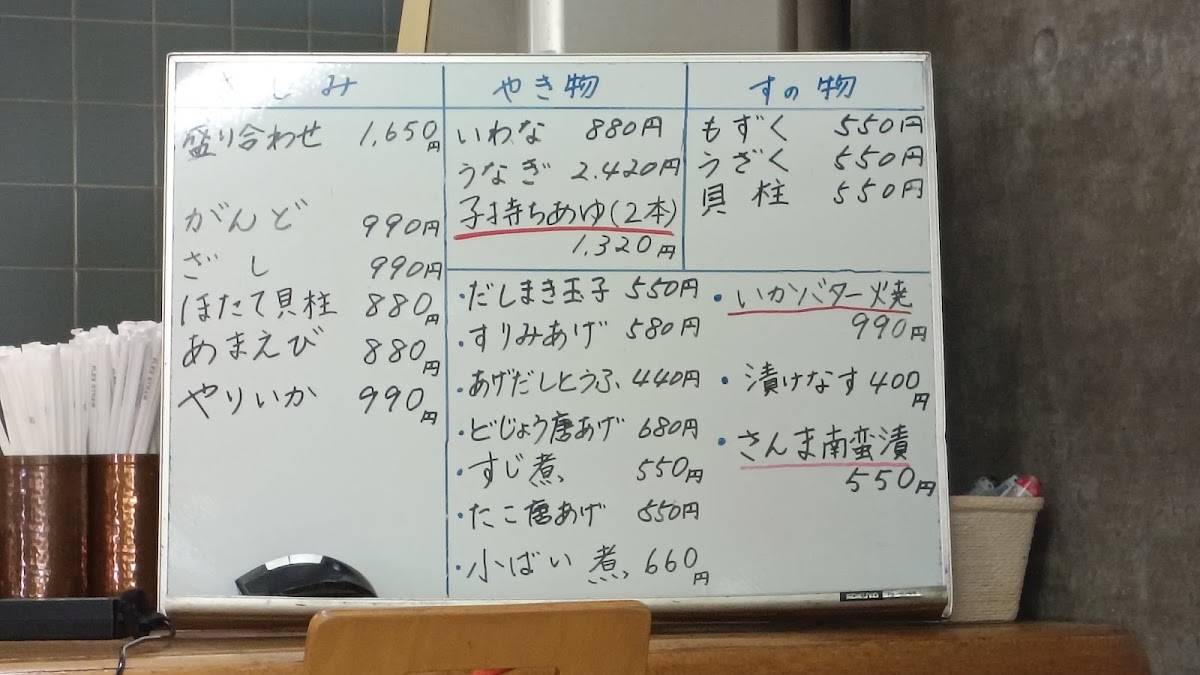 さしみ
盛り合わせ 1,650円
がんど 990円
ざし 990円
ほたて貝柱 880円
あまえび 880円
やりいか 990円
やき物
いわな 880円
うなぎ 2.420円
子持ちあゆ(2本)
1.320円
すの物
もずく 550円
うざく 550円
貝柱 550円
・だしまき玉子 550円
・すりみあげ 580円
・あげだしとうふ 440円
・どじょう唐あげ 680円
・すじ煮 550円
・たこ唐あげ 550円
・小ばい煮 660円
・いかバター焼
990円
・漬けなす 400円
・さんま南蛮漬
550円
KOKUYO